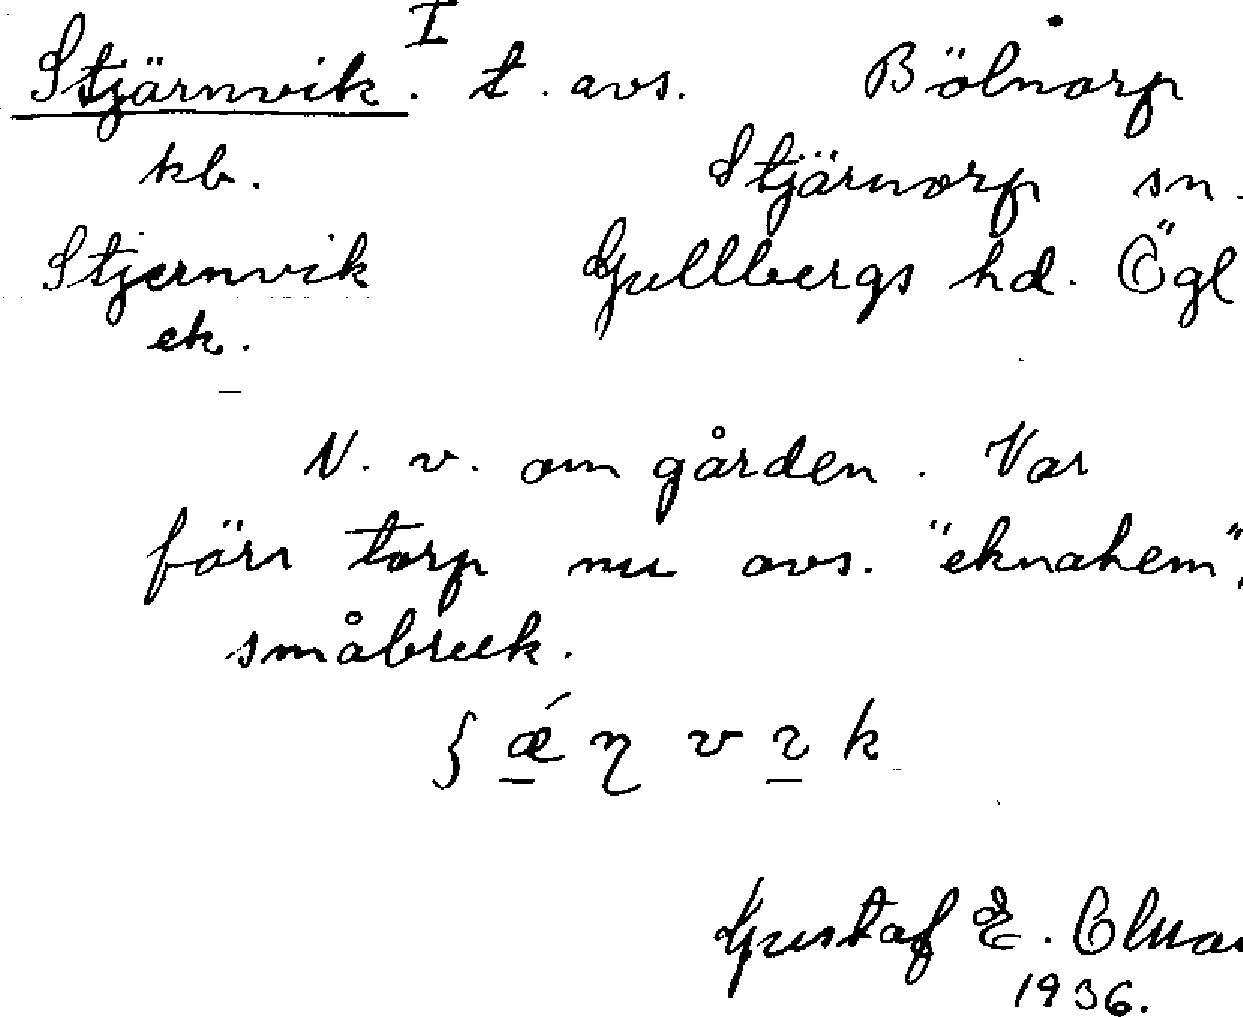 Stjärnvik. I t. avs. Bölnorp
kb. Stjärnorp sn.
Stjernvik Gullbergs hd. Ögl
ek.
N. v. om gården. Var
förr torp nu avs. "eknahem",
småbruk.
ʃ ǽ η v ı k
Gustaf E.
1936.